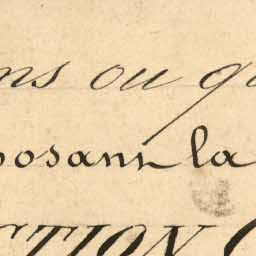 ns ou q
posant la
CTION